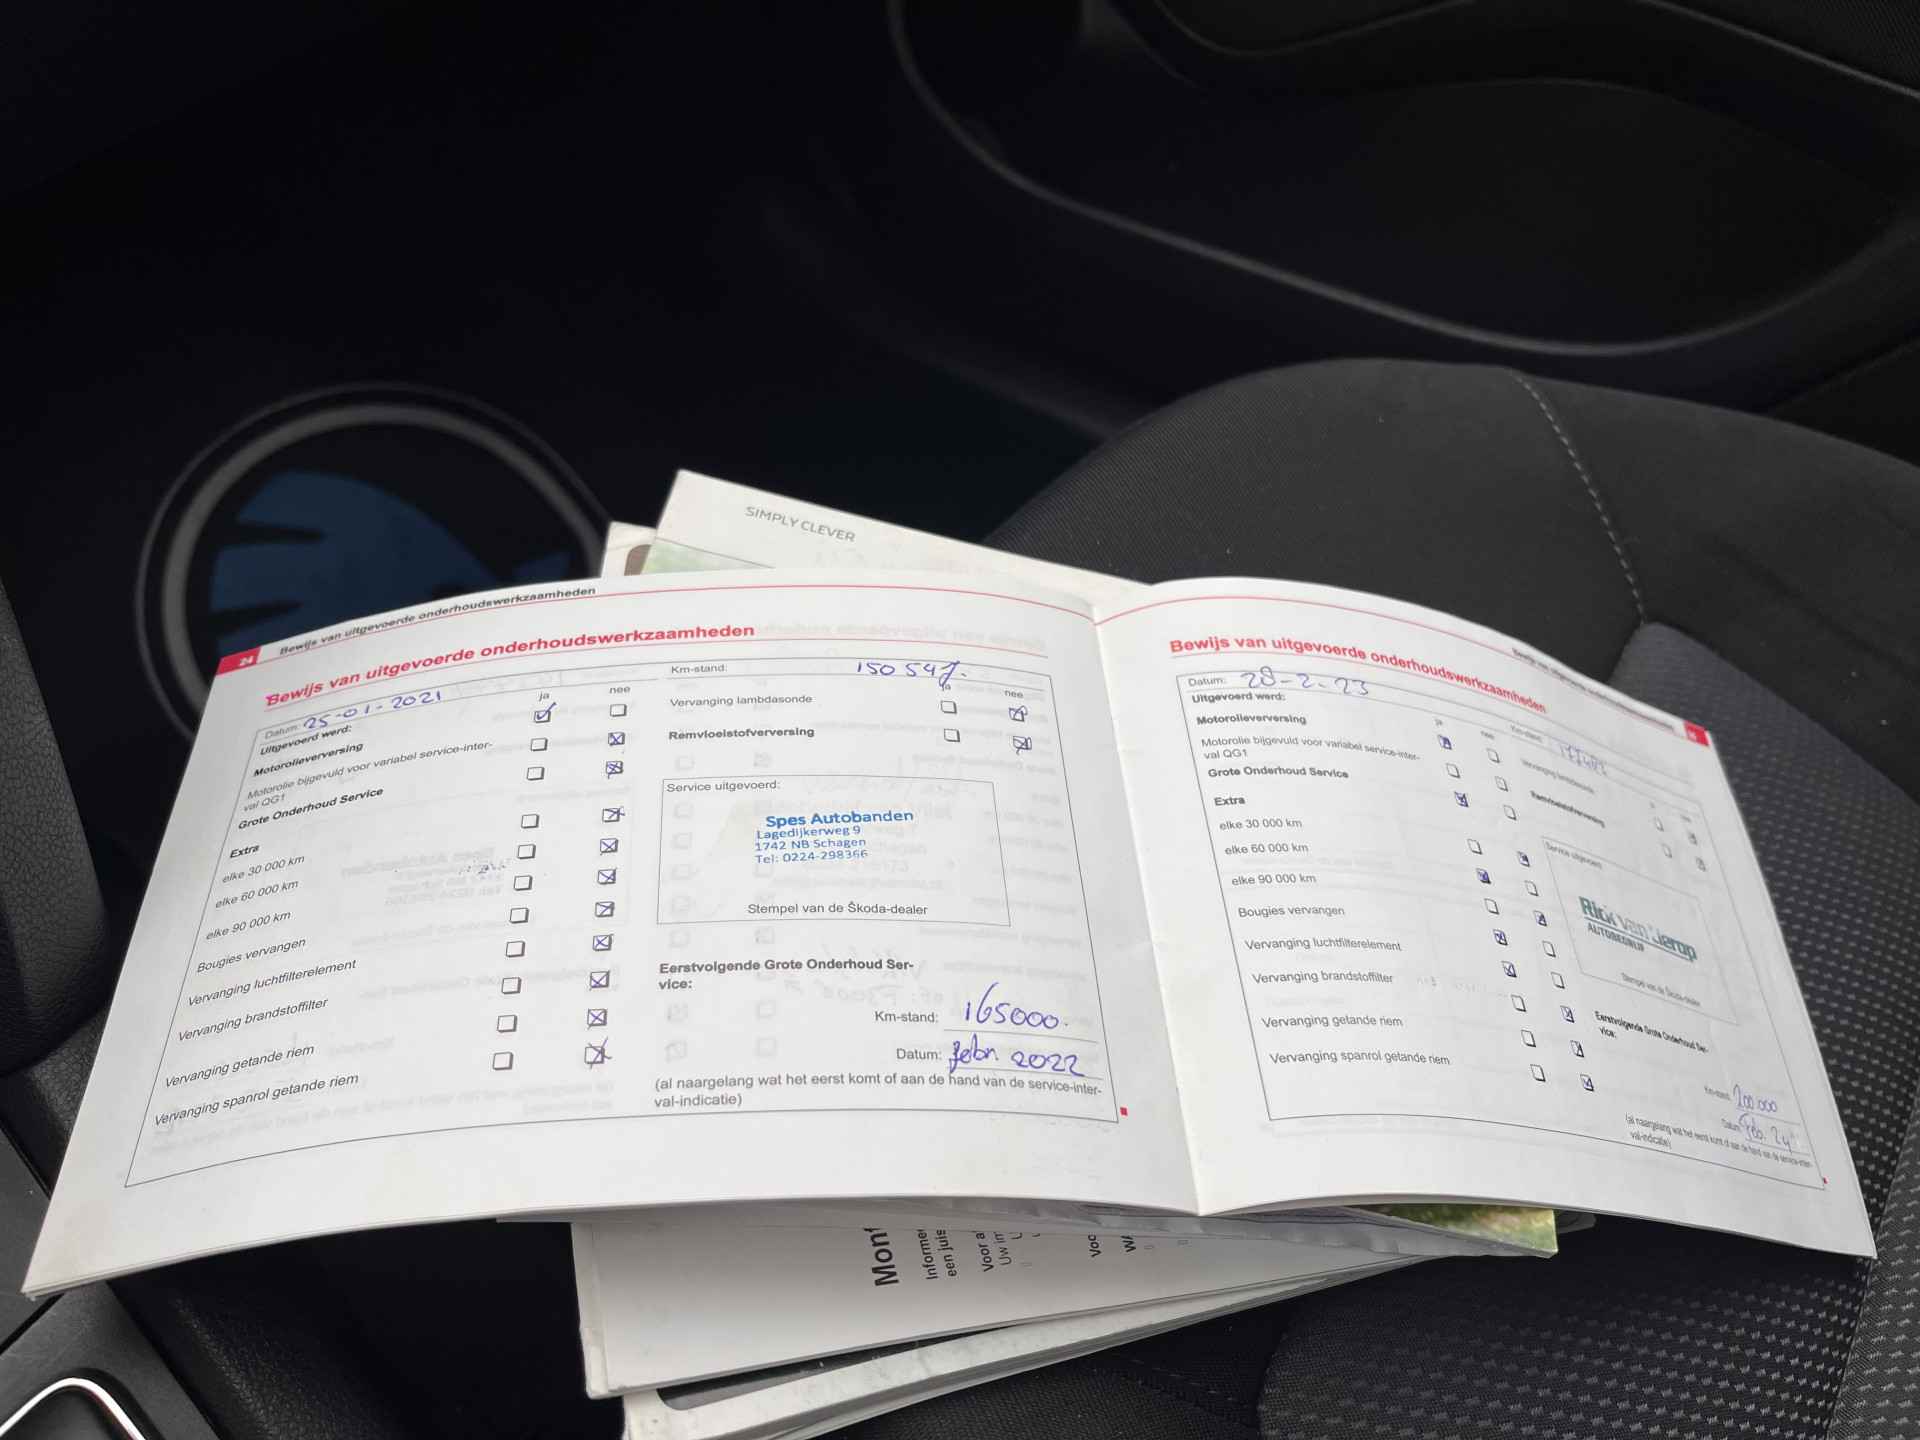 SIMPLY CLEVER
24
Bewijs van uitgevoerde onderhoudswerkzaamheden
Bewijs van uitgevoerde onderhoudswerkzaamheden
Datum: 25-01-2021
Uitgevoerd werd:
ja nee
Motorolieverversing
Motorolie bijgevuld voor variabel service-inter-
val QG1
Grote Onderhoud Service
Extra
elke 30 000 km
elke 60 000 km
elke 90 000 km
Bougies vervangen
Vervanging luchtfilterelement
Vervanging brandstoffilter
Vervanging getande riem
Vervanging spanrol getande riem
Km-stand:
ja nee
Vervanging lambdasonde
Remvloeistofverversing
Service uitgevoerd:
Spes Autobanden
Lagedijkerweg 9
1742 NB Schagen
Tel: 0224-298366
Stempel van de Škoda-dealer
Eerstvolgende Grote Onderhoud Ser-
vice:
Km-stand: 165000.
Datum: febr 2022
(al naargelang wat het eerst komt of aan de hand van de service-inter-
val-indicatie)
Bewijs van uitgevoerde onderhoudswerkzaamheden
Bewijs van uitgevoerde onderhoudswerkzaamheden
Datum: 28-2-23
Uitgevoerd werd:
ja nee
Motorolieverversing
Motorolie bijgevuld voor variabel service-inter-
val QG1
Grote Onderhoud Service
Extra
elke 30 000 km
elke 60 000 km
elke 90 000 km
Bougies vervangen
Vervanging luchtfilterelement
Vervanging brandstoffilter
Vervanging getande riem
Vervanging spanrol getande riem
Km-stand:
Vervanging lambdasonde
Remvloeistofverversing
Service uitgevoerd:
Rick van
AUTOBEDRIJF
Stempel van de Škoda-dealer
Eerstvolgende Grote Onderhoud Ser-
vice:
Km-stand: 200 000
Datum: Feb. 24
(al naargelang wat het eerst komt of aan de hand van de service-inter-
val-indicatie)
Informe
een juis
Voor a
Uw
Voc